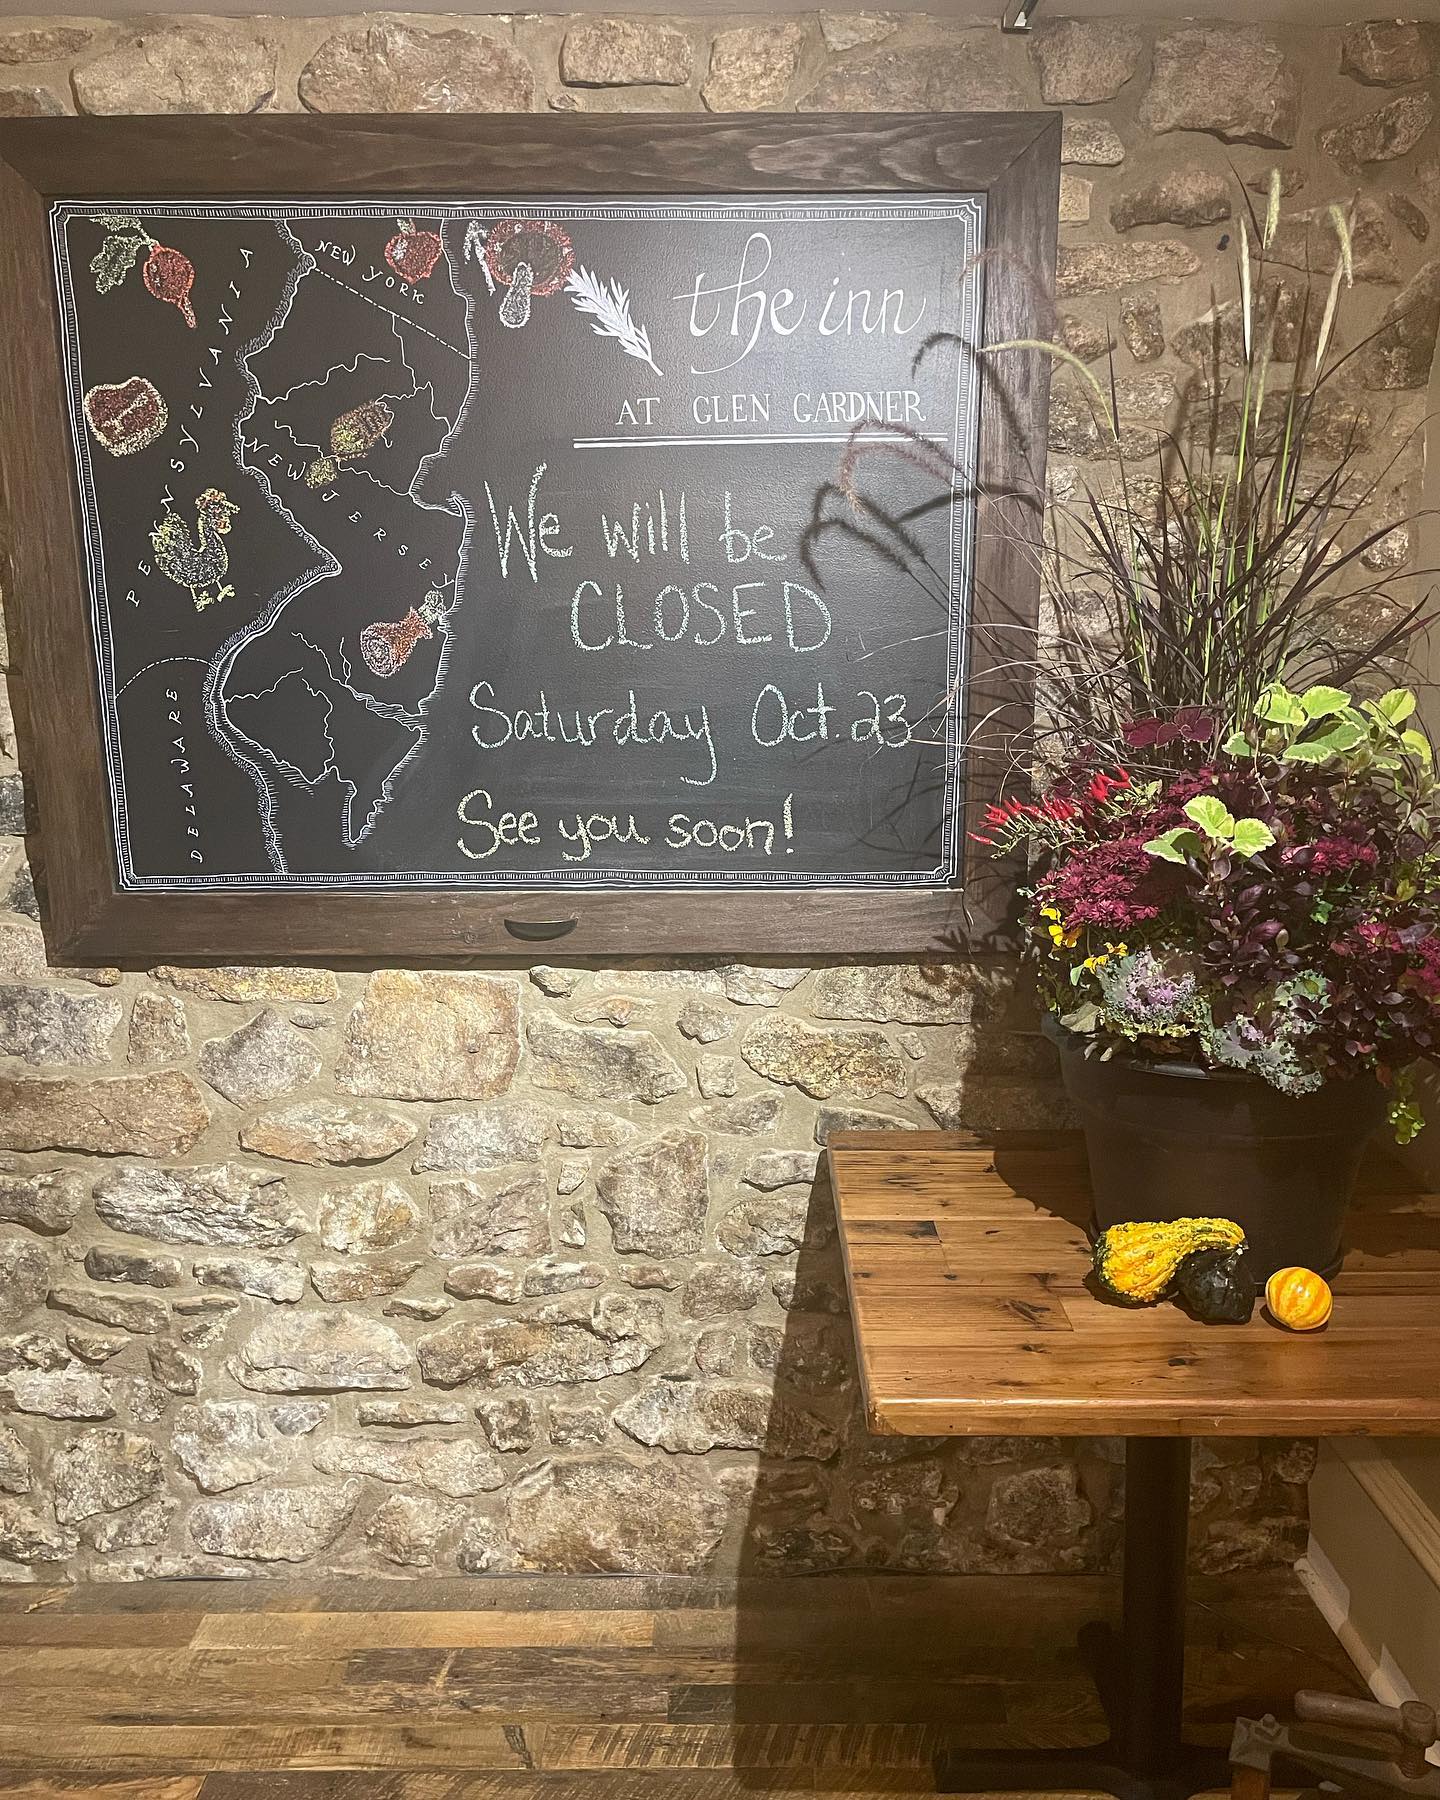 the inn
AT GLEN GARDNER
We will be
CLOSED
Saturday Oct. 23
See you soon!
NEW YORK
PENNSYLVANIA
NEW JERSEY
DELAWARE